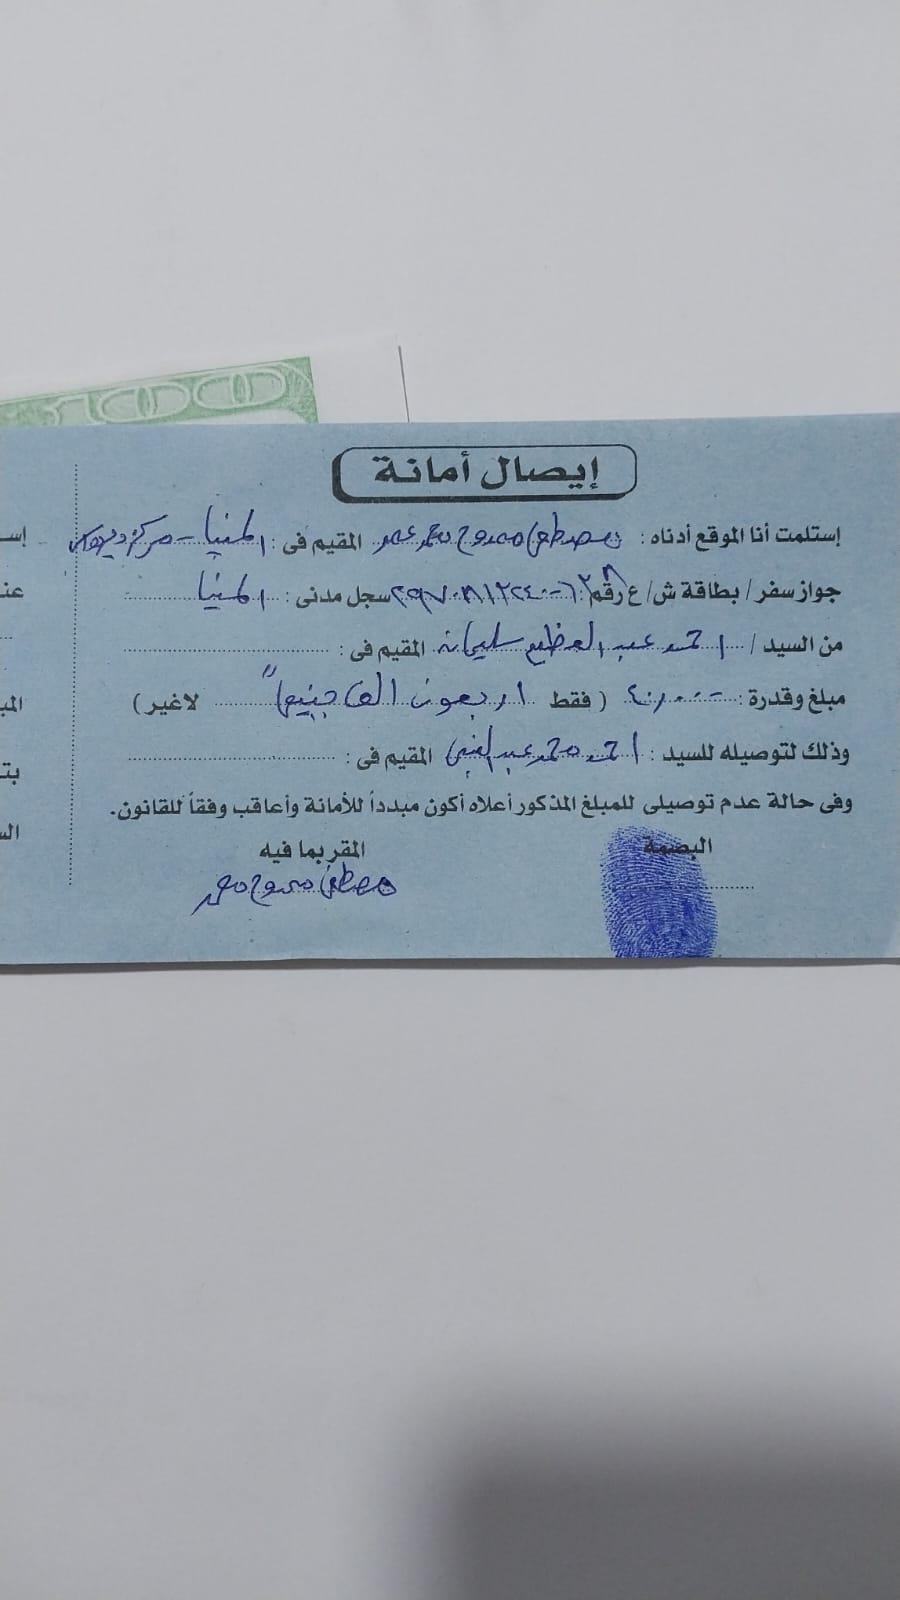 100
إيصال أمانة
إستلمت أنا الموقع أدناه : مصطفى ممدوح محمد عمر المقيم فى : المنيا - مركز ديرمواس
جواز سفر / بطاقة ش / ع رقم : سجل مدنى : المنيا
من السيد / احمد عبد العظيم سليمان المقيم فى :
مبلغ وقدرة : ٤٠٠٠٠ ( فقط اربعون الف جنيهاً لاغير )
وذلك لتوصيله للسيد : احمد محمد عبد الغنى المقيم فى :
وفى حالة عدم توصيلى للمبلغ المذكور أعلاه أكون مبدداً للأمانة وأعاقب وفقاً للقانون.
البصمة المقر بما فيه
مصطفى ممدوح محمد